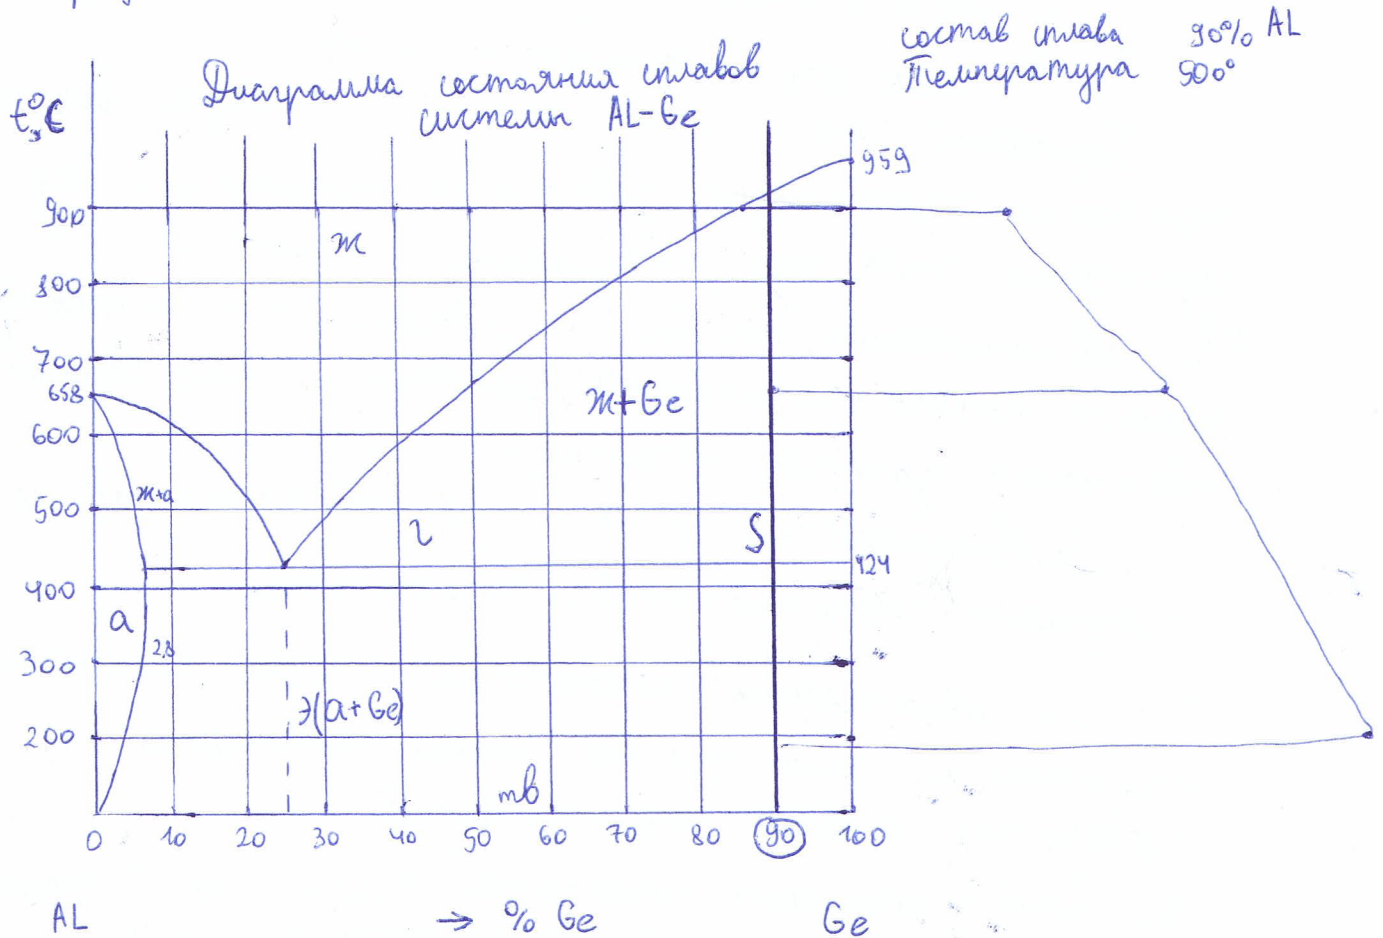 состав сплава 90% AL
Температура 900°
Диаграмма состояния сплавов
системы AL-Ge
t,°C
959
900
ж
800
700
658
ж+Ge
600
ж+а
500
l
S
424
400
а
2,8
300
Э(а+Ge)
200
тв
0 10 20 30 40 50 60 70 80 90 100
AL → % Ge Ge